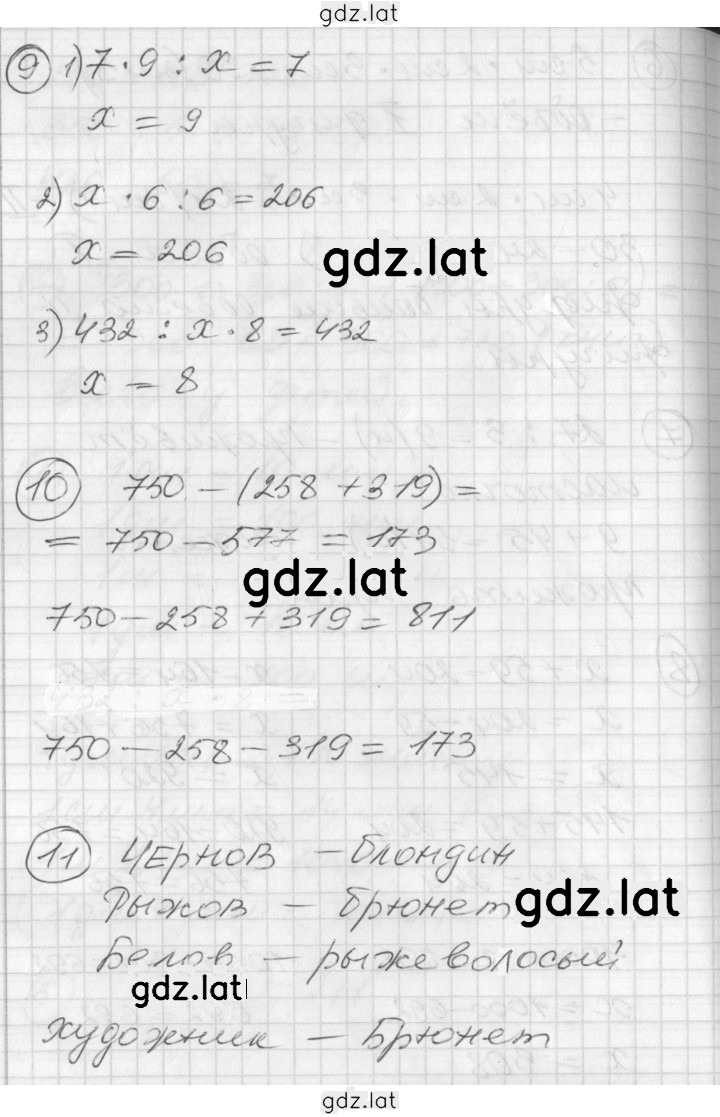 gdz.lat
9 1) 7 · 9 : x = 7
x = 9
2) x · 6 : 6 = 206
x = 206
gdz.lat
3) 432 : x · 8 = 432
x = 8
10 750 - (258 + 319) =
= 750 - 577 = 173
gdz.lat
750 - 258 + 319 = 811
750 - 258 - 319 = 173
11 Чернов - блондин
Рыжов - брюнет
gdz.lat
Белов - рыжеволосый
gdz.lat
художник - Брюнет
gdz.lat